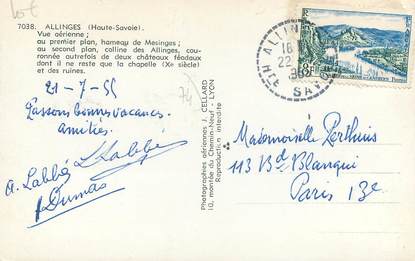 10€
7038. ALLINGES (Haute-Savoie).
Vue aérienne ;
au premier plan, hameau de Mesinges ;
au second plan, colline des Allinges, cou-
ronnée autrefois de deux châteaux féodaux
dont il ne reste que la chapelle (Xe siècle)
et des ruines.
74
21-7-55
Passons bonnes vacances.
amitiés.
LLabbé
A. Labbé
Dumas
Photographies aériennes J. CELLARD
10, montée du Chemin-Neuf - LYON
Reproduction interdite
ALLIN
HTE SAV
Mademoiselle Perthuis
113 Bd Blanqui
Paris 13e